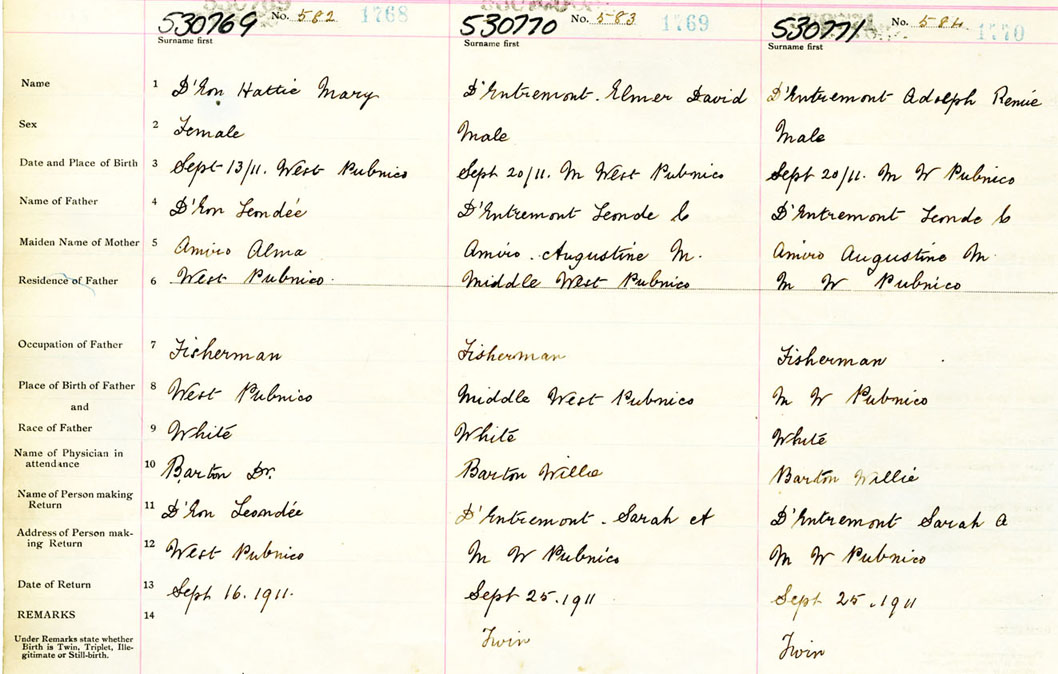 530769 No. 582 1768 530770 No. 583 1769 530771 No. 584 1770
Surname first Surname first Surname first
Name 1 D'Eon Hattie Mary D'Entremont. Elmer David D'Entremont Adolph Renie
Sex 2 Female Male Male
Date and Place of Birth 3 Sept 13/11. West Pubnico Sept 20/11. M West Pubnico Sept 20/11. M W Pubnico
Name of Father 4 D'Eon Leondée D'Entremont Leonde C D'Entremont Leonde C
Maiden Name of Mother 5 Amiro Alma Amiro. Augustine M. Amiro Augustine M.
Residence of Father 6 West Pubnico. Middle West Pubnico M W Pubnico
Occupation of Father 7 Fisherman Fisherman Fisherman
Place of Birth of Father 8 West Pubnico Middle West Pubnico M W Pubnico
and
Race of Father 9 White White White
Name of Physician in
attendance 10 Barton Dr. Barton Willie Barton Willie
Name of Person making
Return 11 D'Eon Leondée D'Entremont. Sarah A D'Entremont Sarah A
Address of Person mak-
ing Return 12 West Pubnico M W Pubnico M W Pubnico
Date of Return 13 Sept 16. 1911. Sept 25. 1911 Sept 25. 1911
REMARKS 14
Under Remarks state whether
Birth is Twin, Triplet, Ille-
gitimate or Still-birth. Twin Twin